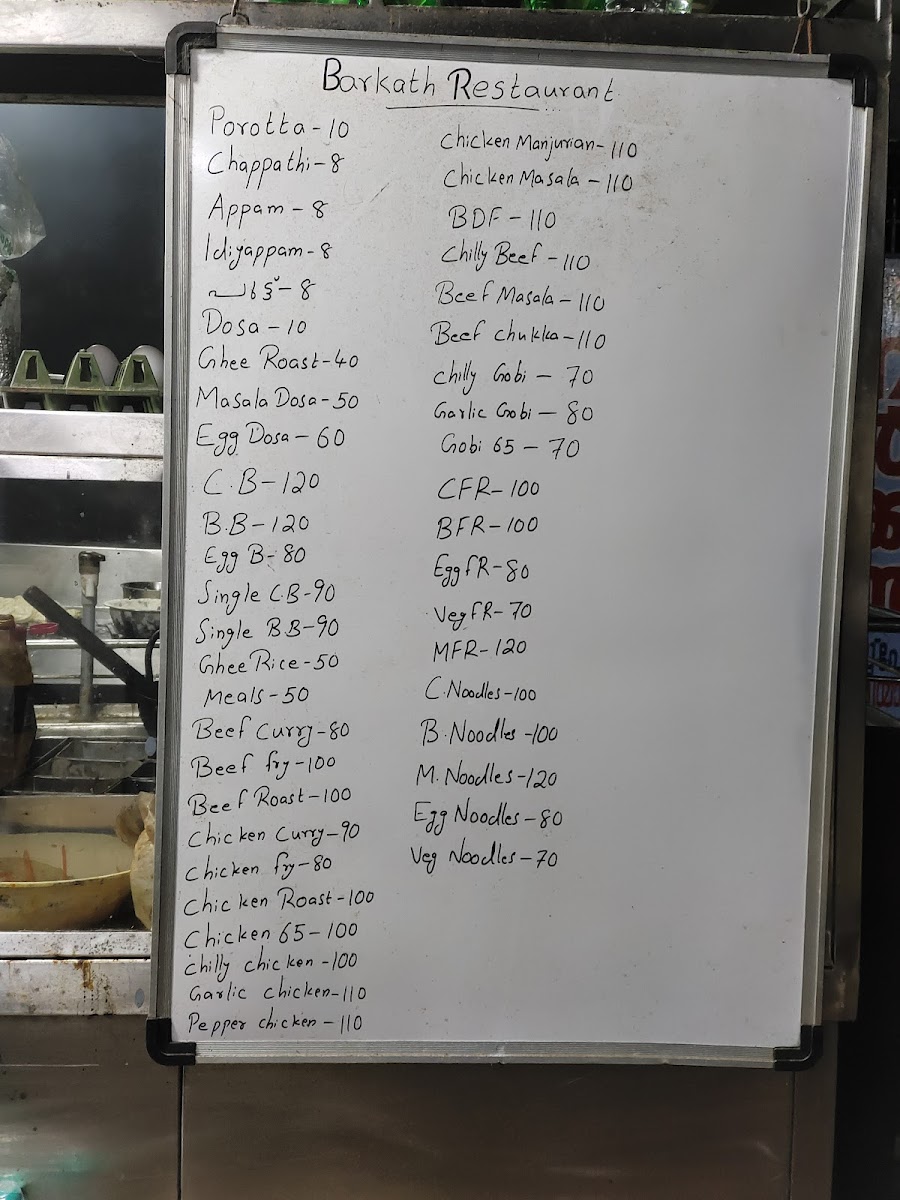 Barkath Restaurant
Porotta - 10
Chappathi - 8
Appam - 8
Idiyappam - 8
പുട്ട് - 8
Dosa - 10
Ghee Roast - 40
Masala Dosa - 50
Egg Dosa - 60
C.B - 120
B.B - 120
Egg B - 80
Single C.B - 90
Single B.B - 90
Ghee Rice - 50
Meals - 50
Beef Curry - 80
Beef fry - 100
Beef Roast - 100
Chicken Curry - 90
Chicken fry - 80
Chicken Roast - 100
Chicken 65 - 100
chilly chicken - 100
Garlic chicken - 110
Pepper chicken - 110
Chicken Manjurian - 110
Chicken Masala - 110
BDF - 110
Chilly Beef - 110
Beef Masala - 110
Beef chukka - 110
chilly Gobi - 70
Garlic Gobi - 80
Gobi 65 - 70
CFR - 100
BFR - 100
Egg FR - 80
Veg FR - 70
MFR - 120
C.Noodles - 100
B.Noodles - 100
M.Noodles - 120
Egg Noodles - 80
Veg Noodles - 70